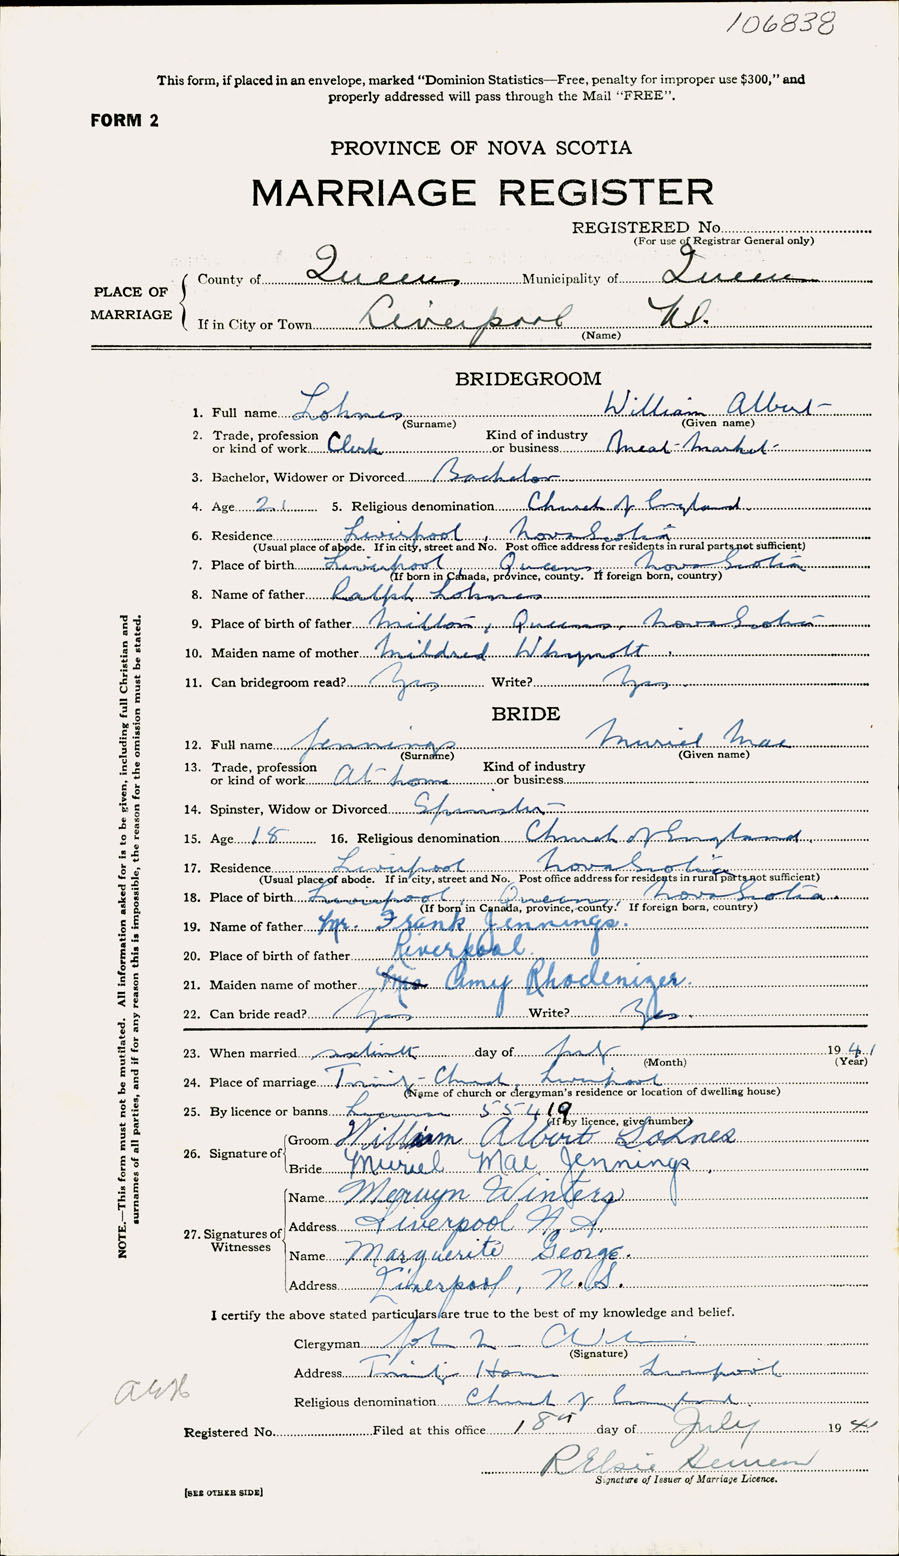 106838
This form, if placed in an envelope, marked “Dominion Statistics—Free, penalty for improper use $300,” and
properly addressed will pass through the Mail “FREE”.
FORM 2
PROVINCE OF NOVA SCOTIA
MARRIAGE REGISTER
REGISTERED No.
(For use of Registrar General only)
PLACE OF MARRIAGE
County of Queens Municipality of Queens
If in City or Town Liverpool N.S.
(Name)
BRIDEGROOM
1. Full name Lohnes William Albert
(Surname) (Given name)
2. Trade, profession or kind of work Clerk Kind of industry or business Meat-Market
3. Bachelor, Widower or Divorced Bachelor
4. Age 21 5. Religious denomination Church of England
6. Residence Liverpool, Nova Scotia
(Usual place of abode. If in city, street and No. Post office address for residents in rural parts not sufficient)
7. Place of birth Liverpool, Queens, Nova Scotia
(If born in Canada, province, county. If foreign born, country)
8. Name of father Ralph Lohnes
9. Place of birth of father Milton, Queens, Nova Scotia
10. Maiden name of mother Mildred Whynott
11. Can bridegroom read? Yes Write? Yes
BRIDE
12. Full name Jennings Muriel Mae
(Surname) (Given name)
13. Trade, profession or kind of work At home Kind of industry or business
14. Spinster, Widow or Divorced Spinster
15. Age 18 16. Religious denomination Church of England
17. Residence Liverpool Nova Scotia
(Usual place of abode. If in city, street and No. Post office address for residents in rural parts not sufficient)
18. Place of birth Liverpool, Queens, Nova Scotia.
(If born in Canada, province, county. If foreign born, country)
19. Name of father Mr. Frank Jennings.
20. Place of birth of father Liverpool.
21. Maiden name of mother Mrs Amy Rhodenizer.
22. Can bride read? Yes Write? Yes.
23. When married sixteenth day of July 1941
(Month) (Year)
24. Place of marriage Trinity-Church, Liverpool
(Name of church or clergyman's residence or location of dwelling house)
25. By licence or banns License 55419
(If by licence, give number)
26. Signature of
Groom William Albert Lohnes
Bride Muriel Mae Jennings,
27. Signatures of Witnesses
Name Mervyn Winters
Address Liverpool N.S.
Name Marguerite George.
Address Liverpool, N.S.
I certify the above stated particulars are true to the best of my knowledge and belief.
Clergyman John
(Signature)
Address Trinity Liverpool
Religious denomination Church of England.
Registered No. Filed at this office 18th day of July 1941
R Elsie
Signature of Issuer of Marriage Licence.
[SEE OTHER SIDE]
NOTE.—This form must not be mutilated. All information asked for is to be given, including full Christian and
surnames of all parties, and if for any reason this is impossible, the reason for the omission must be stated.